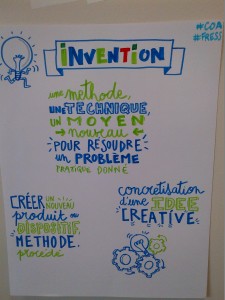 #COA
#FRESS
INVENTION
une methode,
UNE TECHNIQUE,
UN MOYEN
nouveau
POUR RESOUDRE
un PROBLÈME
PRATIQUE DONNE
CRÉER UN NOUVEAU
produit ou
DISPOSITIF
METHODE.
procédé
concrétisation
d'une IDEE
CREATIVE